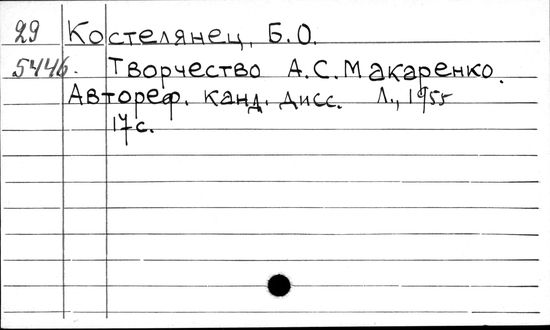 29 Костелянец, Б.О.
5446. Творчество А.С.Макаренко.
Автореф. канд. дисс. Л., 1955
17с.